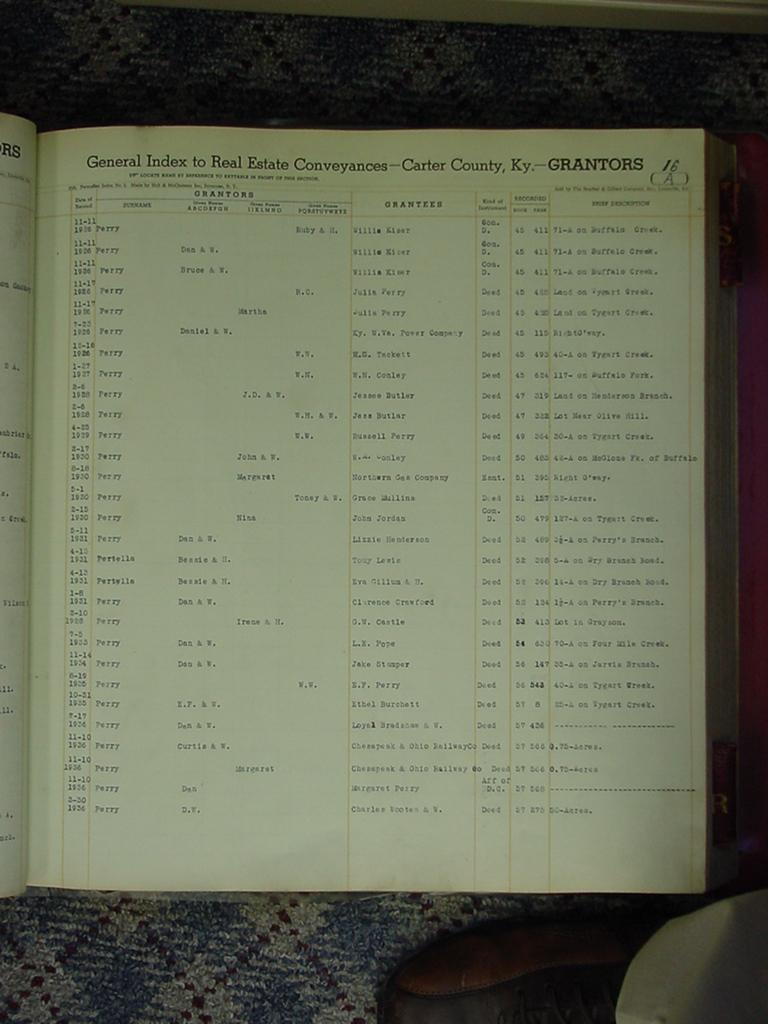 General Index to Real Estate Conveyances—Carter County, Ky.—GRANTORS
16
A
GRANTORS
SURNAME ABCDEFGH IJKLMNO PQRSTUVWXYZ GRANTEES Kind of Instrument RECORDED BOOK PAGE BRIEF DESCRIPTION
11-11 1926 Perry Ruby & H. Willis Kiser Con. D. 45 411 71-A on Buffalo Creek.
11-11 1926 Perry Dan & W. Willis Kiser Con. D. 45 411 71-A on Buffalo Creek
11-11 1926 Perry Bruce & W. Willis Kiser Con. D. 45 411 71-A on Buffalo Creek
11-17 1926 Perry R.C. Julia Perry Deed 45 Land on Tygart Creek.
11-17 1926 Perry Martha Julia Perry Deed 45 Land on Tygart Creek.
1926 Perry Daniel & W. Ky. W.Va. Power Company Deed 45 115 RightO'way.
1926 Perry W.W. Tackett Deed 45 493 40-A on Tygart Creek.
1-27 1927 Perry W.N. Conley Deed 45 624 117- on Buffalo Fork.
2-6 1928 Perry J.D. & W. Jessee Butler Deed 47 319 Land on Henderson Branch.
2-6 1928 Perry W.H. & W. Jess Butlar Deed 47 322 Lot Near Olive Hill.
4-25 1929 Perry W.W. Russell Perry Deed 49 364 30-A on Tygart Creek.
2-17 1930 Perry John & W. Conley Deed 50 on McGlone Fk. of Buffalo
8-18 1930 Perry Margaret Northern Gas Company Esmt. 51 395 Right O'way.
5-1 1930 Perry Toney & W. Grace Mullins Deed 51 157
2-15 1930 Perry Nina John Jordan Con. D. 50 479 127-A on Tygart Creek.
5-11 1931 Perry Dan & W. Lizzie Henderson Deed 52 489 on Perry's Branch.
4-13 1931 Pertella Bessie & H. Tony Lewis Deed 52 398 5-A on Dry Branch Road.
4-13 1931 Pertella Bessie & H. Eva Gillum & H. Deed 52 396 14-A on Dry Branch Road.
1-8 1931 Perry Dan & W. Clarence Crawford Deed 52 134 1½-A on Perry's Branch.
1928 Perry Irene & H. G.W. Castle Deed 53 413 Lot in Grayson.
7-5 1933 Perry Dan & W. L.E. Pope Deed 54 630 70-A on Four Mile Creek.
11-14 1934 Perry Dan & W. Jake Stamper Deed 56 147 35-A on Jarvis Branch.
8-19 1935 Perry W.W. E.F. Perry Deed 56 543 40-A on Tygart Creek.
10-31 1935 Perry E.F. & W. Ethel Burchett Deed 57 8 25-A on Tygart Creek.
7-17 1936 Perry Dan & W. Loyal Bradshaw & W. Deed 57 436 --------------------
11-10 1936 Perry Curtis & W. Chesapeak & Ohio RailwayCo Deed 57 566 0.75-Acres.
11-10 1936 Perry Margaret Chesapeak & Ohio Railway Co Deed 57 566 0.75-Acres
11-10 1936 Perry Dan Margaret Perry Aff of D.C. 57 568 --------------------
3-30 1936 Perry D.W. Charles Wooten & W. Deed 57 275 50-Acres.